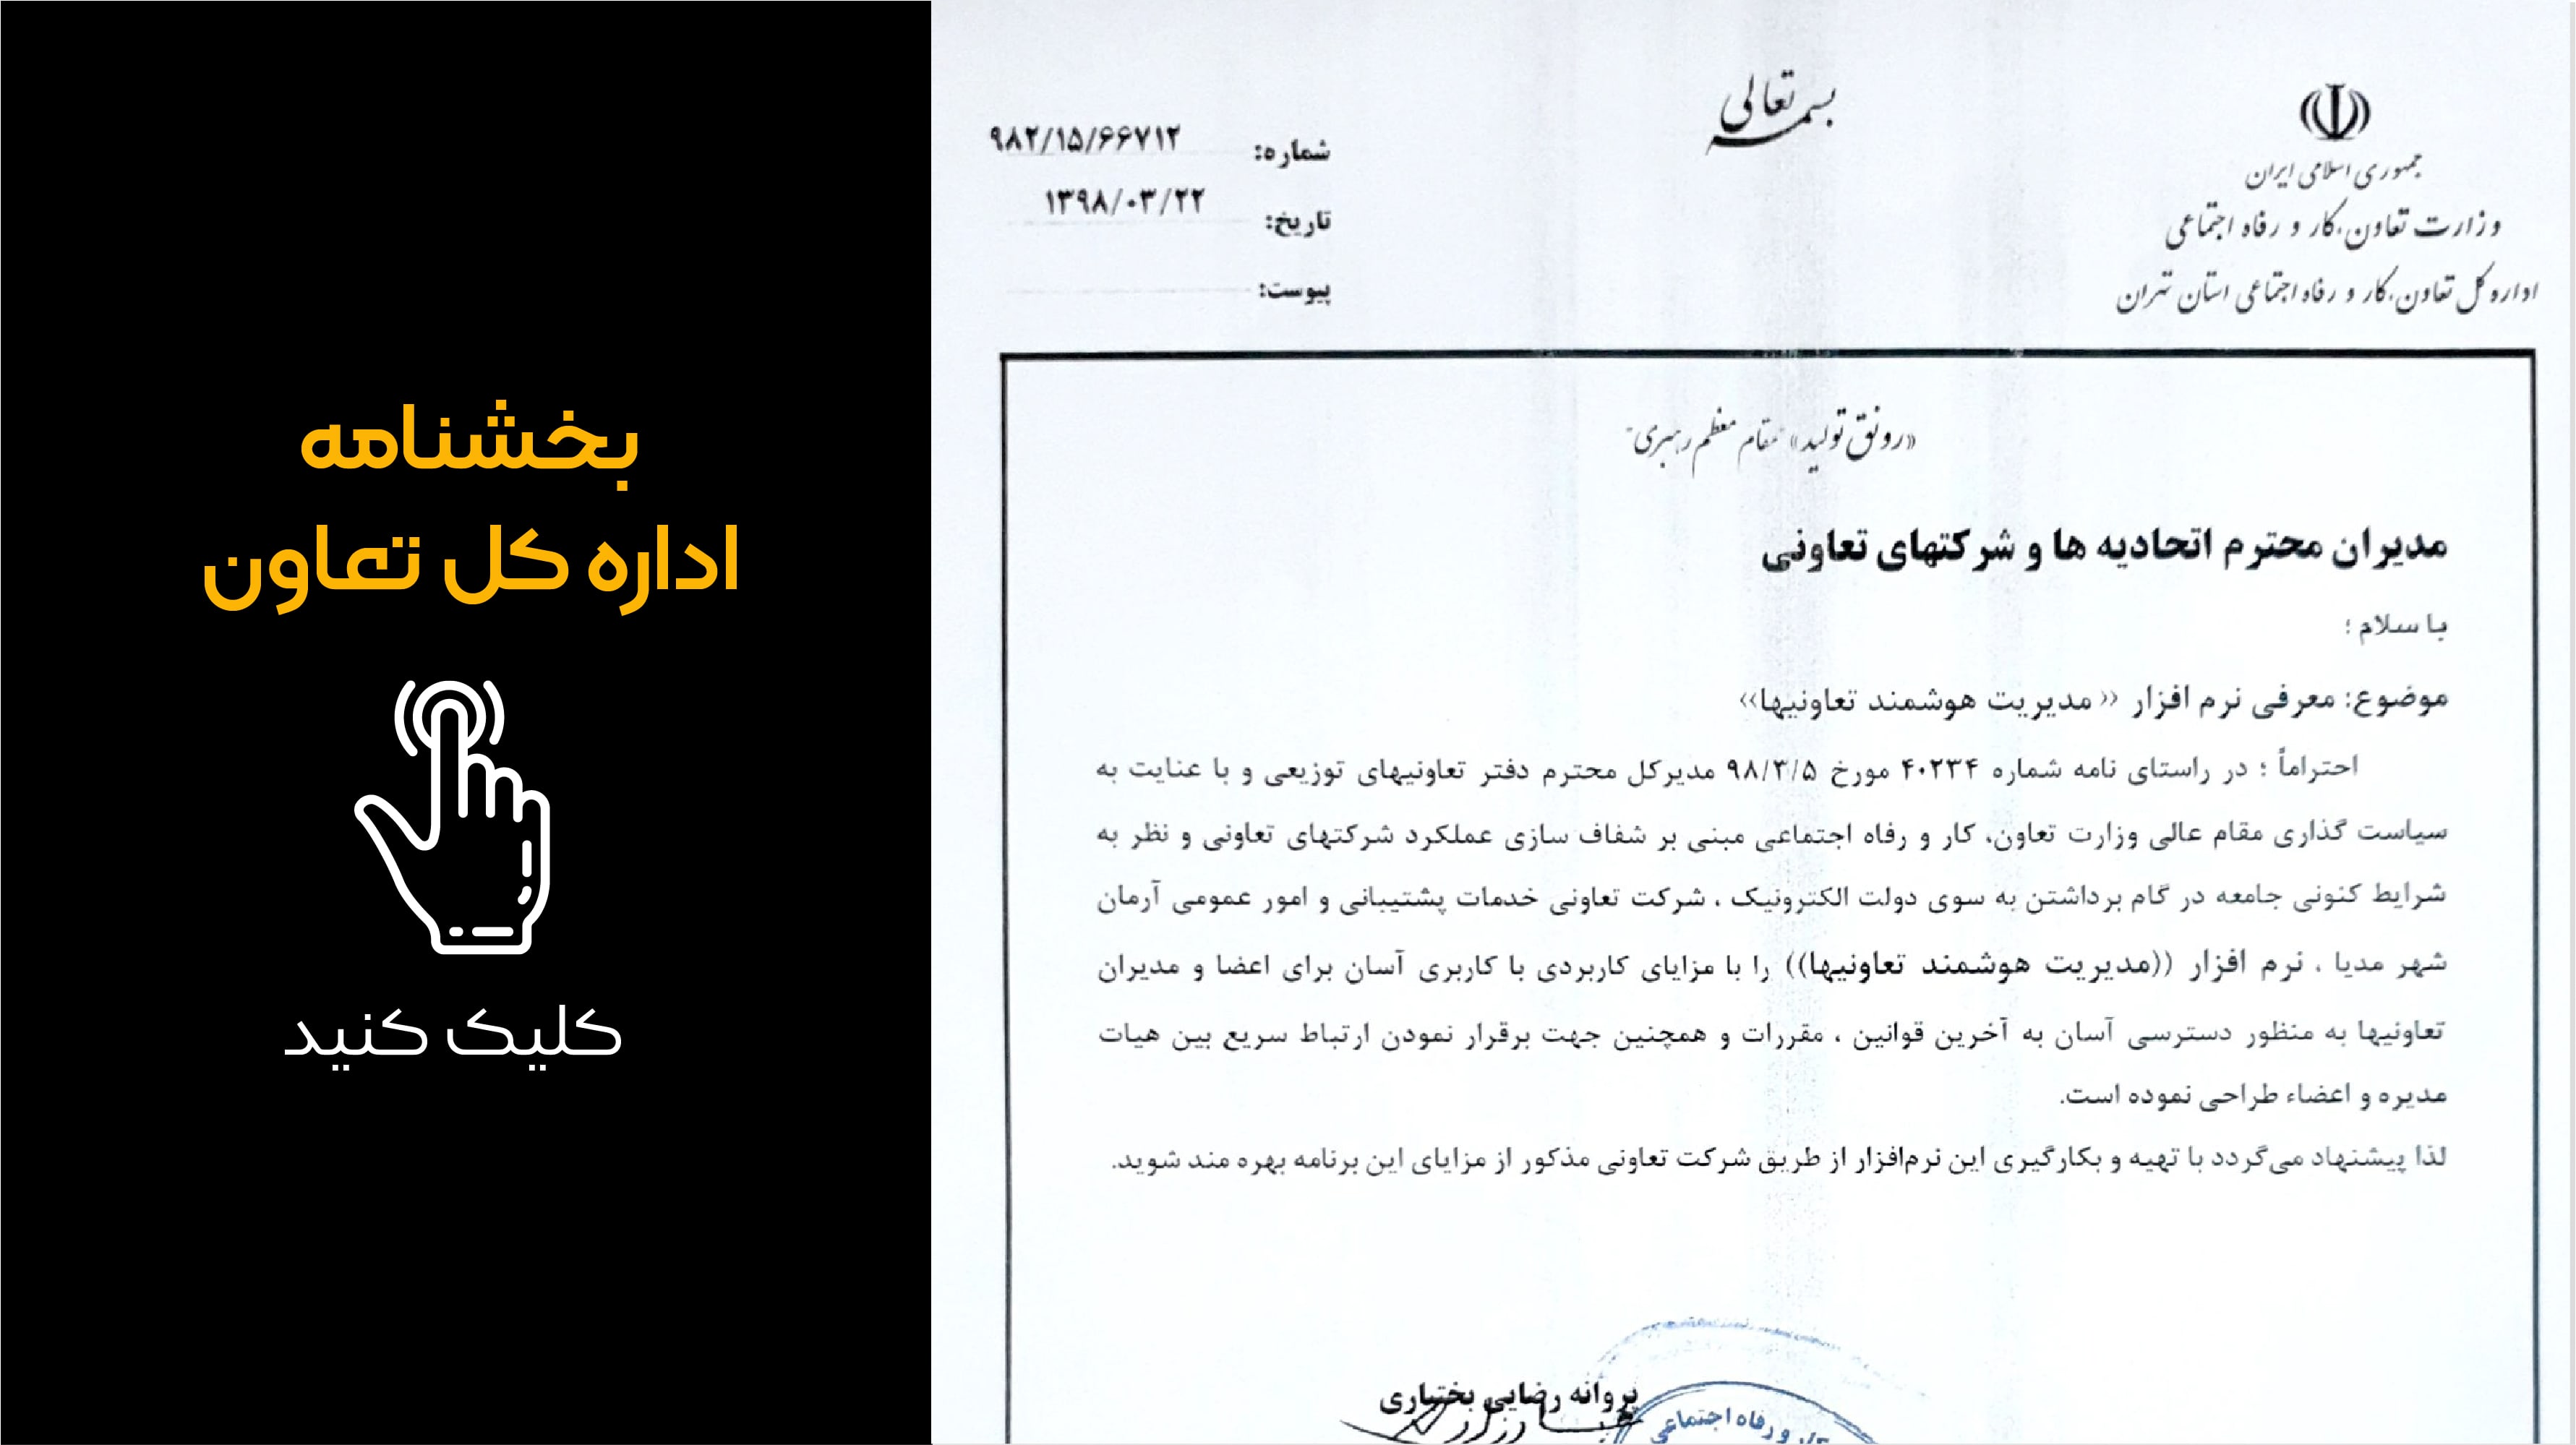 بخشنامه
اداره کل تعاون
کلیک کنید
بسمه تعالی
جمهوری اسلامی ایران
وزارت تعاون، کار و رفاه اجتماعی
اداره کل تعاون، کار و رفاه اجتماعی استان تهران
شماره: ۹۸۲/۱۵/۶۶۷۱۲
تاریخ: ۱۳۹۸/۰۳/۲۲
پیوست:
«رونق تولید» "مقام معظم رهبری"
مدیران محترم اتحادیه ها و شرکتهای تعاونی
با سلام ؛
موضوع: معرفی نرم افزار ‹‹ مدیریت هوشمند تعاونیها››
احتراماً ؛ در راستای نامه شماره ۴۰۲۳۴ مورخ ۹۸/۳/۵ مدیرکل محترم دفتر تعاونیهای توزیعی و با عنایت به
سیاست گذاری مقام عالی وزارت تعاون، کار و رفاه اجتماعی مبنی بر شفاف سازی عملکرد شرکتهای تعاونی و نظر به
شرایط کنونی جامعه در گام برداشتن به سوی دولت الکترونیک ، شرکت تعاونی خدمات پشتیبانی و امور عمومی آرمان
شهر مدیا ، نرم افزار ((مدیریت هوشمند تعاونیها)) را با مزایای کاربردی با کاربری آسان برای اعضا و مدیران
تعاونیها به منظور دسترسی آسان به آخرین قوانین ، مقررات و همچنین جهت برقرار نمودن ارتباط سریع بین هیات
مدیره و اعضاء طراحی نموده است.
لذا پیشنهاد می‌گردد با تهیه و بکارگیری این نرم‌افزار از طریق شرکت تعاونی مذکور از مزایای این برنامه بهره مند شوید.
پروانه رضایی بختیاری
و رفاه اجتماعی